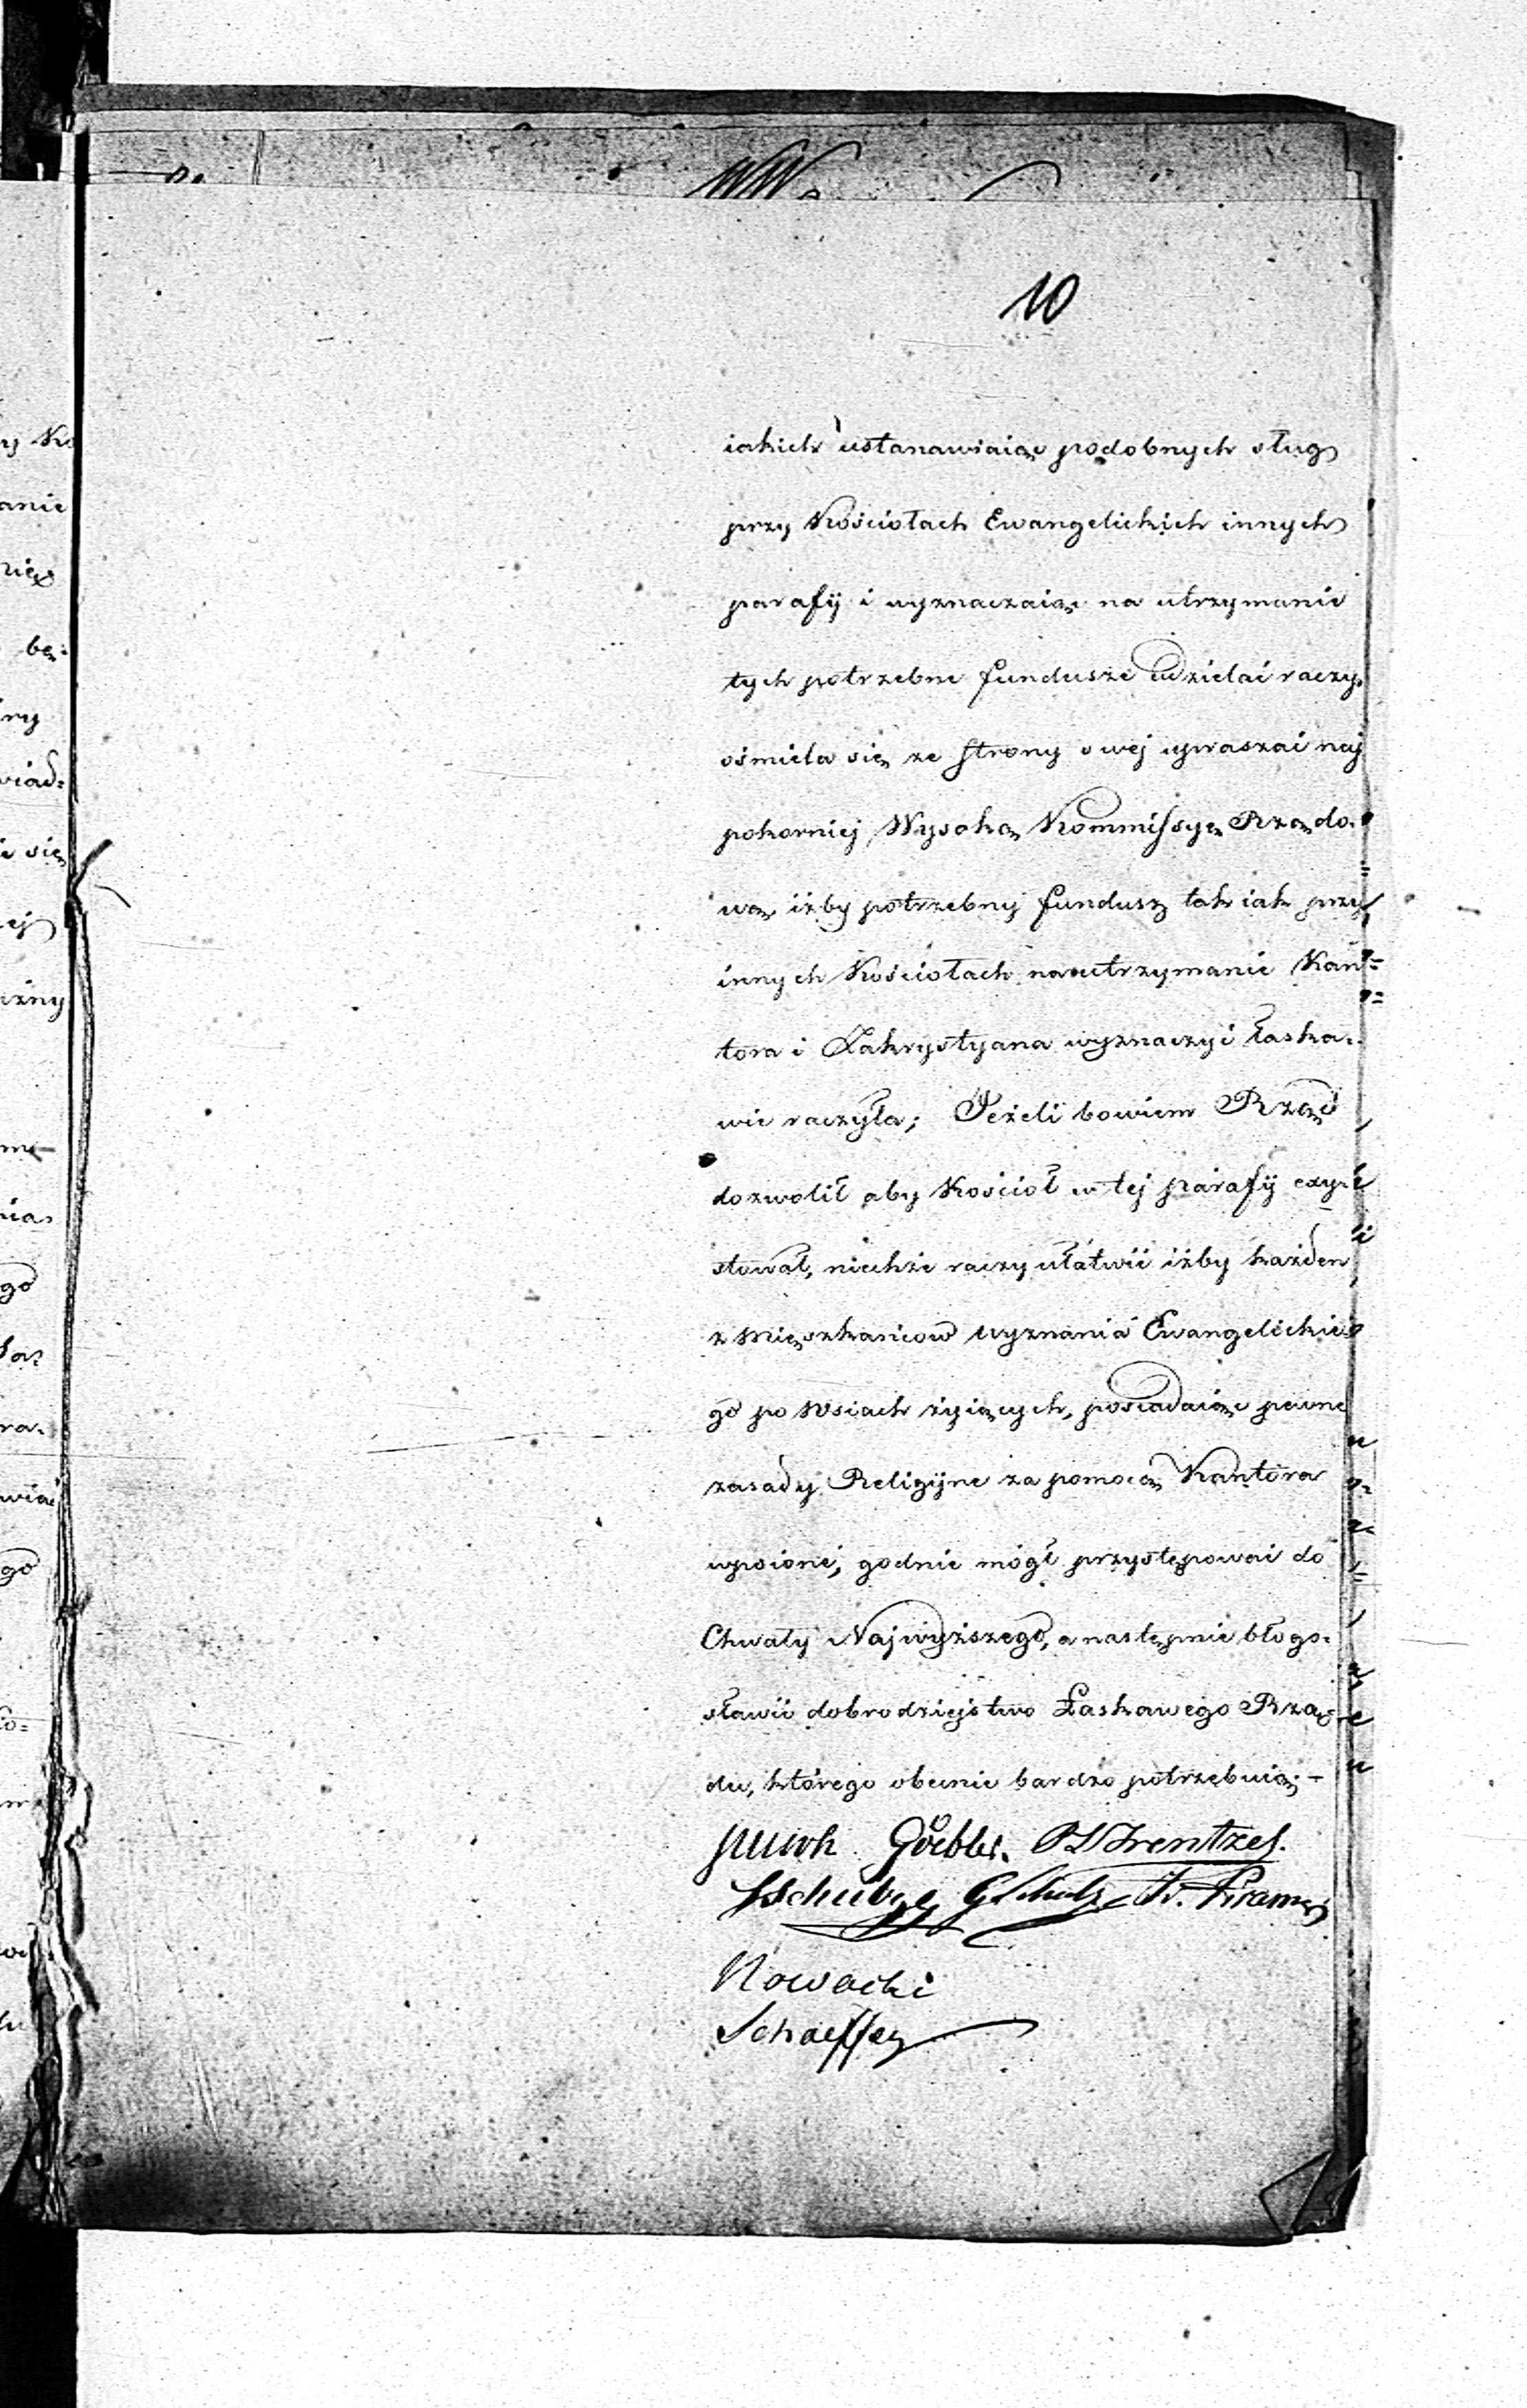 10
iakich ustanawiaiąc podobnych sług
przy Kościołach Ewangelickich innych
parafij i wyznaczaiąc na utrzymanie
tych potrzebne fundusze udzielać raczy,
ośmiela się ze strony swej upraszać naj
pokorniej Wysoką Kommissyę Rządo-
wą iżby potrzebny fundusz tak iak przy
innych Kościołach na utrzymanie Kan-
tora i Zakrystyana wyznaczyć łaska-
wie raczyła; Jeżeli bowiem Rząd
dozwolił aby Kościół w tej parafij exy-
stował, niechże raczy ułatwić iżby każden
z Mięszkańców wyznania Ewangelickie-
go po wsiach żyiących, posiadaiąc pewne
zasady Religijne za pomocą Kantora
wpoione, godnie mógł przystępować do
Chwały Najwyższego, a następnie błogo-
sławić dobrodziejstwo Łaskawego Rzą-
du, którego obecnie bardzo potrzebuią;-
Goebler. Frentzel.
GScholz
Nowacki
Schaeffer